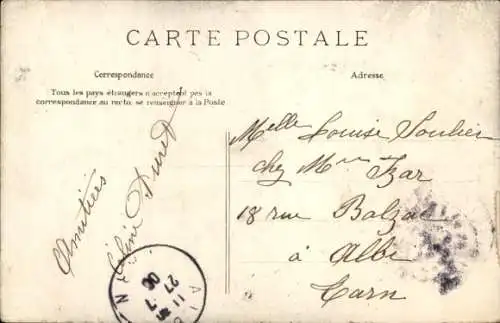 CARTE POSTALE
Correspondance
Tous les pays étrangers n'acceptent pas la
correspondance au recto, se renseigner à la Poste
Adresse
Amitiées
Duret
Melle Louise Soulier
chez Mme Izar
18 rue Balzac
à Albi
Tarn
27